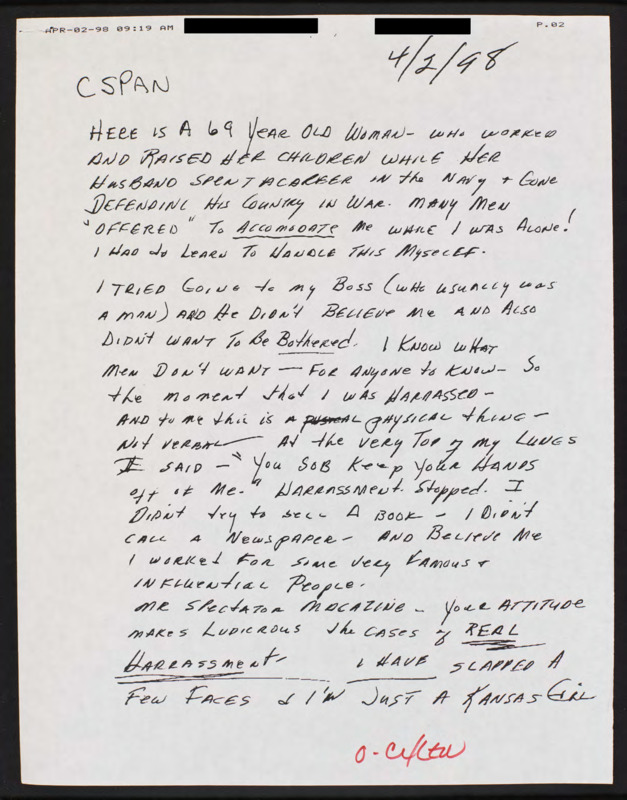 APR-02-98 09:19 AM P.02
4/2/98
CSPAN
HERE IS A 69 YEAR OLD WOMAN - WHO WORKED
AND RAISED HER CHILDREN WHILE HER
HUSBAND SPENT A CAREER IN the NAVY + GONE
DEFENDING HIS COUNTRY IN WAR. MANY MEN
"OFFERED" TO ACCOMODATE Me WHILE I WAS ALONE!
I HAD to LEARN TO HANDLE THIS MYSELF.
I TRIED GOING to my BOSS (WHO USUALLY was
A MAN) AND He DIDN'T BELIEVE Me AND Also
DIDN'T WANT To Be Bothered. I KNOW WHAT
Men DON'T WANT — FOR ANYONE to KNOW - So
the moment that I WAS HARRASSED -
AND to me this is A PHYSICAL thing -
Not VERBAL - At the VERY TOP of my LUNGS
I SAID - "YOU SOB KEEP YOUR HANDS
off of Me." HARRASSMENT. Stopped. I
DIDN'T try to SELL A BOOK - I DIDN'T
CALL A NEWSPAPER - AND BELIEVE Me
I WORKED FOR SOME VERY FAMOUS +
INFLUENTIAL PEOPLE.
MR SPECTATOR MAGAZINE - YOUR ATTITUDE
MAKES LUDICROUS the CASES of REAL
HARRASSMENT - I HAVE SLAPPED A
FEW FACES & I'M JUST A KANSAS GIRL